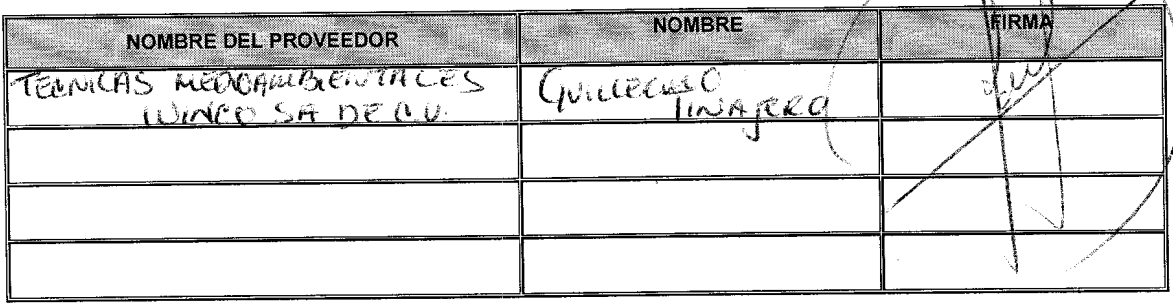 NOMBRE DEL PROVEEDOR
NOMBRE
FIRMA
TECNICAS MEDIOAMBIENTALES
WINCO SA DE C.V.
GUILLERMO
TINAJERO